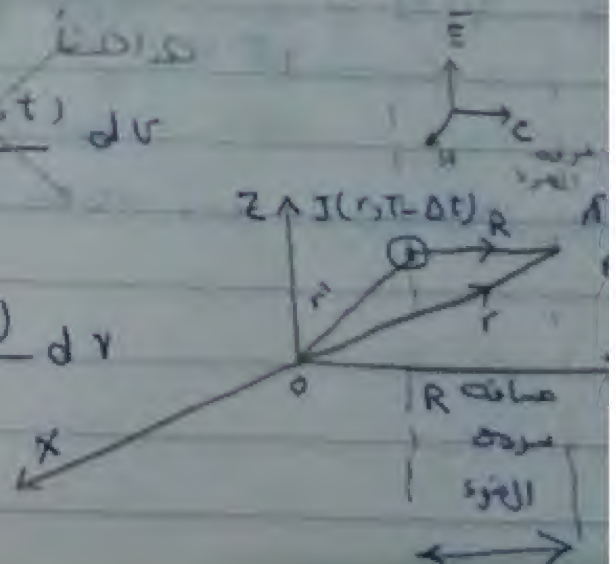 E
,t) dv
C
H
سرعة
الضوء
Z J(r,T-Δt) R
r'
r
) dv
o
X
R مسافة
سرعة
الضوء